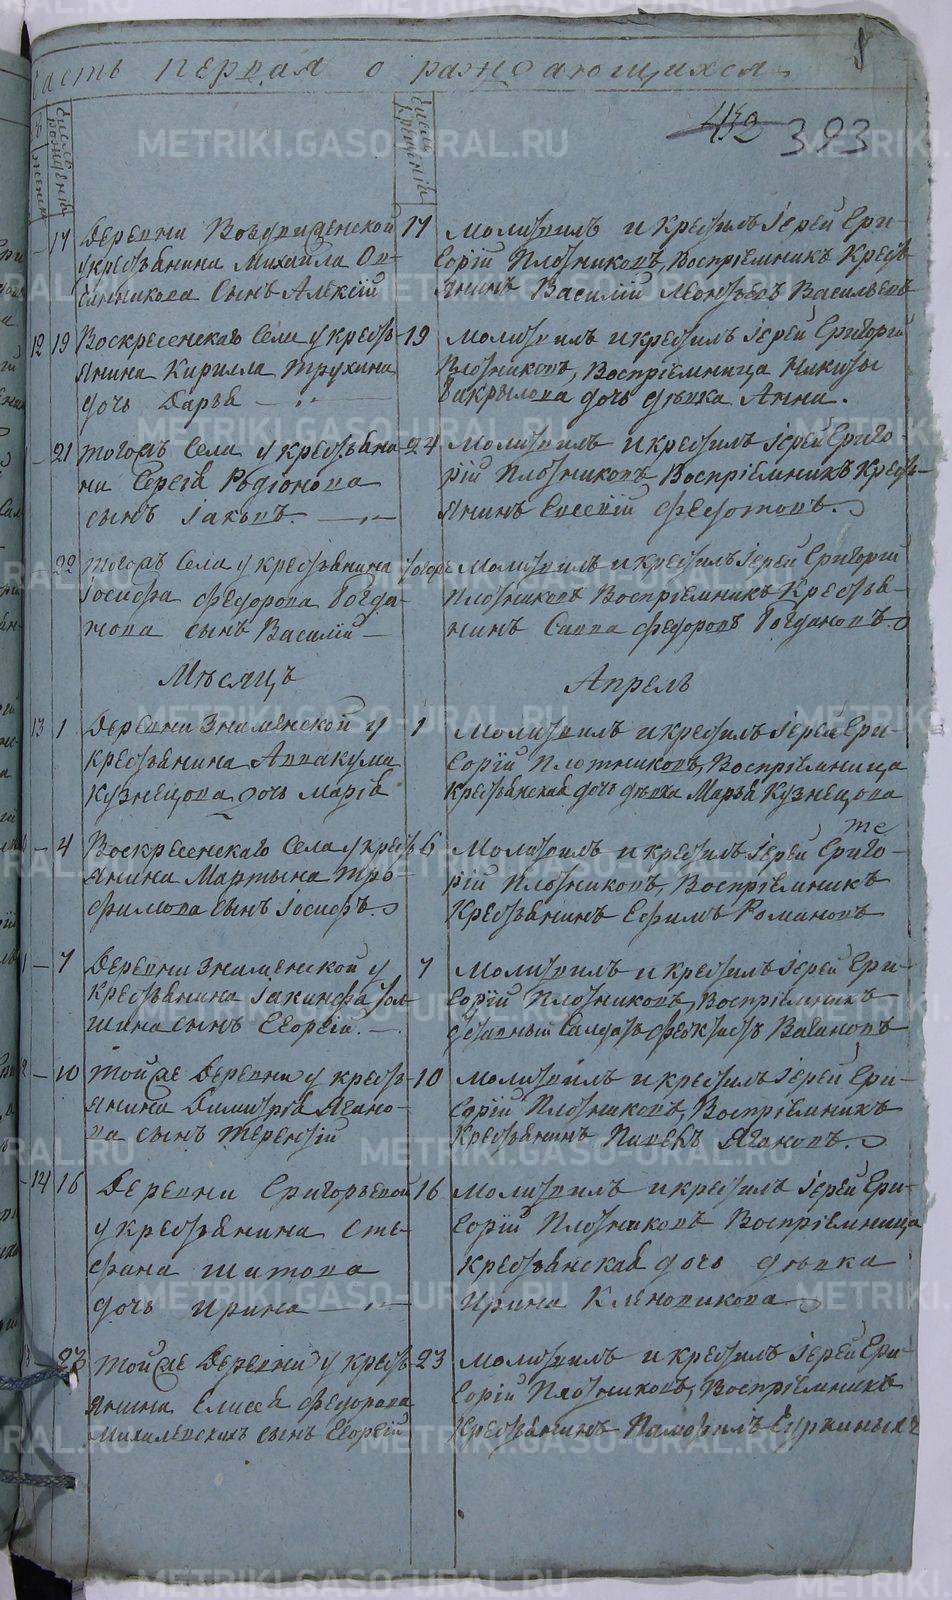 Часть первая о раждающихся
432 393
Число рожденій
Число крещеній
17 Деревни Воздвиженской
у крестьянина Михаила Ов-
чинникова сынъ Алексій
17 Молитвилъ и крестилъ Іерей Гри-
горій Плотниковъ, Воспріемникъ Кресть
янинъ Василій Леонтьевъ Васильевъ
12 19 Воскресенскаго Села у кресть-
янина Кирилла Трухина
дочь Дарья
19 Молитвилъ и крестилъ Іерей Григорій
Плотниковъ, Воспріемница Никиты
дочь дѣвка Анна.
21 тогожъ Села у крестьяни-
на Сергія Родіонова
сынъ Іаковъ.
24 Молитвилъ и крестилъ Іерей Григо-
рій Плотниковъ Воспріемникъ Кресть-
янинъ Евсевій Федотовъ.
22 тогожъ Села у крестьянина
Іосифа Федорова Богда-
нова сынъ Василій
Молитвилъ и крестилъ Іерей Григорій
Плотниковъ Воспріемникъ Крестья-
нинъ Савва Федоровъ Богдановъ.
Мѣсяцъ Апрель
13 1 Деревни Знаменской у
крестьянина Аввакума
Кузнецова дочь Марія
1 Молитвилъ и крестилъ Іерей Гри-
горій Плотниковъ, Воспріемница
крестьянская дочь дѣвка Марья Кузнецова
4 Воскресенскаго Села у кресть
янина Мартына Тро-
фимова сынъ Іосифъ.
6 Молитвилъ и крестилъ Іерей Григо-
рій Плотниковъ, Воспріемникъ
Крестьянинъ Ефимъ Романовъ
7 Деревни Знаменской у
крестьянина Іакинфа
сынъ Георгій.
7 Молитвилъ и крестилъ Іерей Гри-
горій Плотниковъ, Воспріемникъ
отставный Салдатъ Феоктистъ Вагановъ
10 той же Деревни у кресть-
янина Димитрія Ягано-
ва сынъ Терентій
10 Молитвилъ и крестилъ Іерей Гри-
горій Плотниковъ, Воспріемникъ
Крестьянинъ Павелъ Ягановъ.
14 16 Деревни Григорьевой
у крестьянина Сте-
фана Шитова
дочь Ирина
16 Молитвилъ и крестилъ Іерей Гри-
горій Плотниковъ Воспріемница
крестьянская дочь дѣвка
Ирина Кленовикова
23 той же Деревни у кресть
янина Елисея Федорова
Михалевскихъ сынъ Георгій
23 Молитвилъ и крестилъ Іерей Гри-
горій Плотниковъ, Воспріемникъ
Крестьянинъ Памфилъ
METRIKI.GASO-URAL.RU